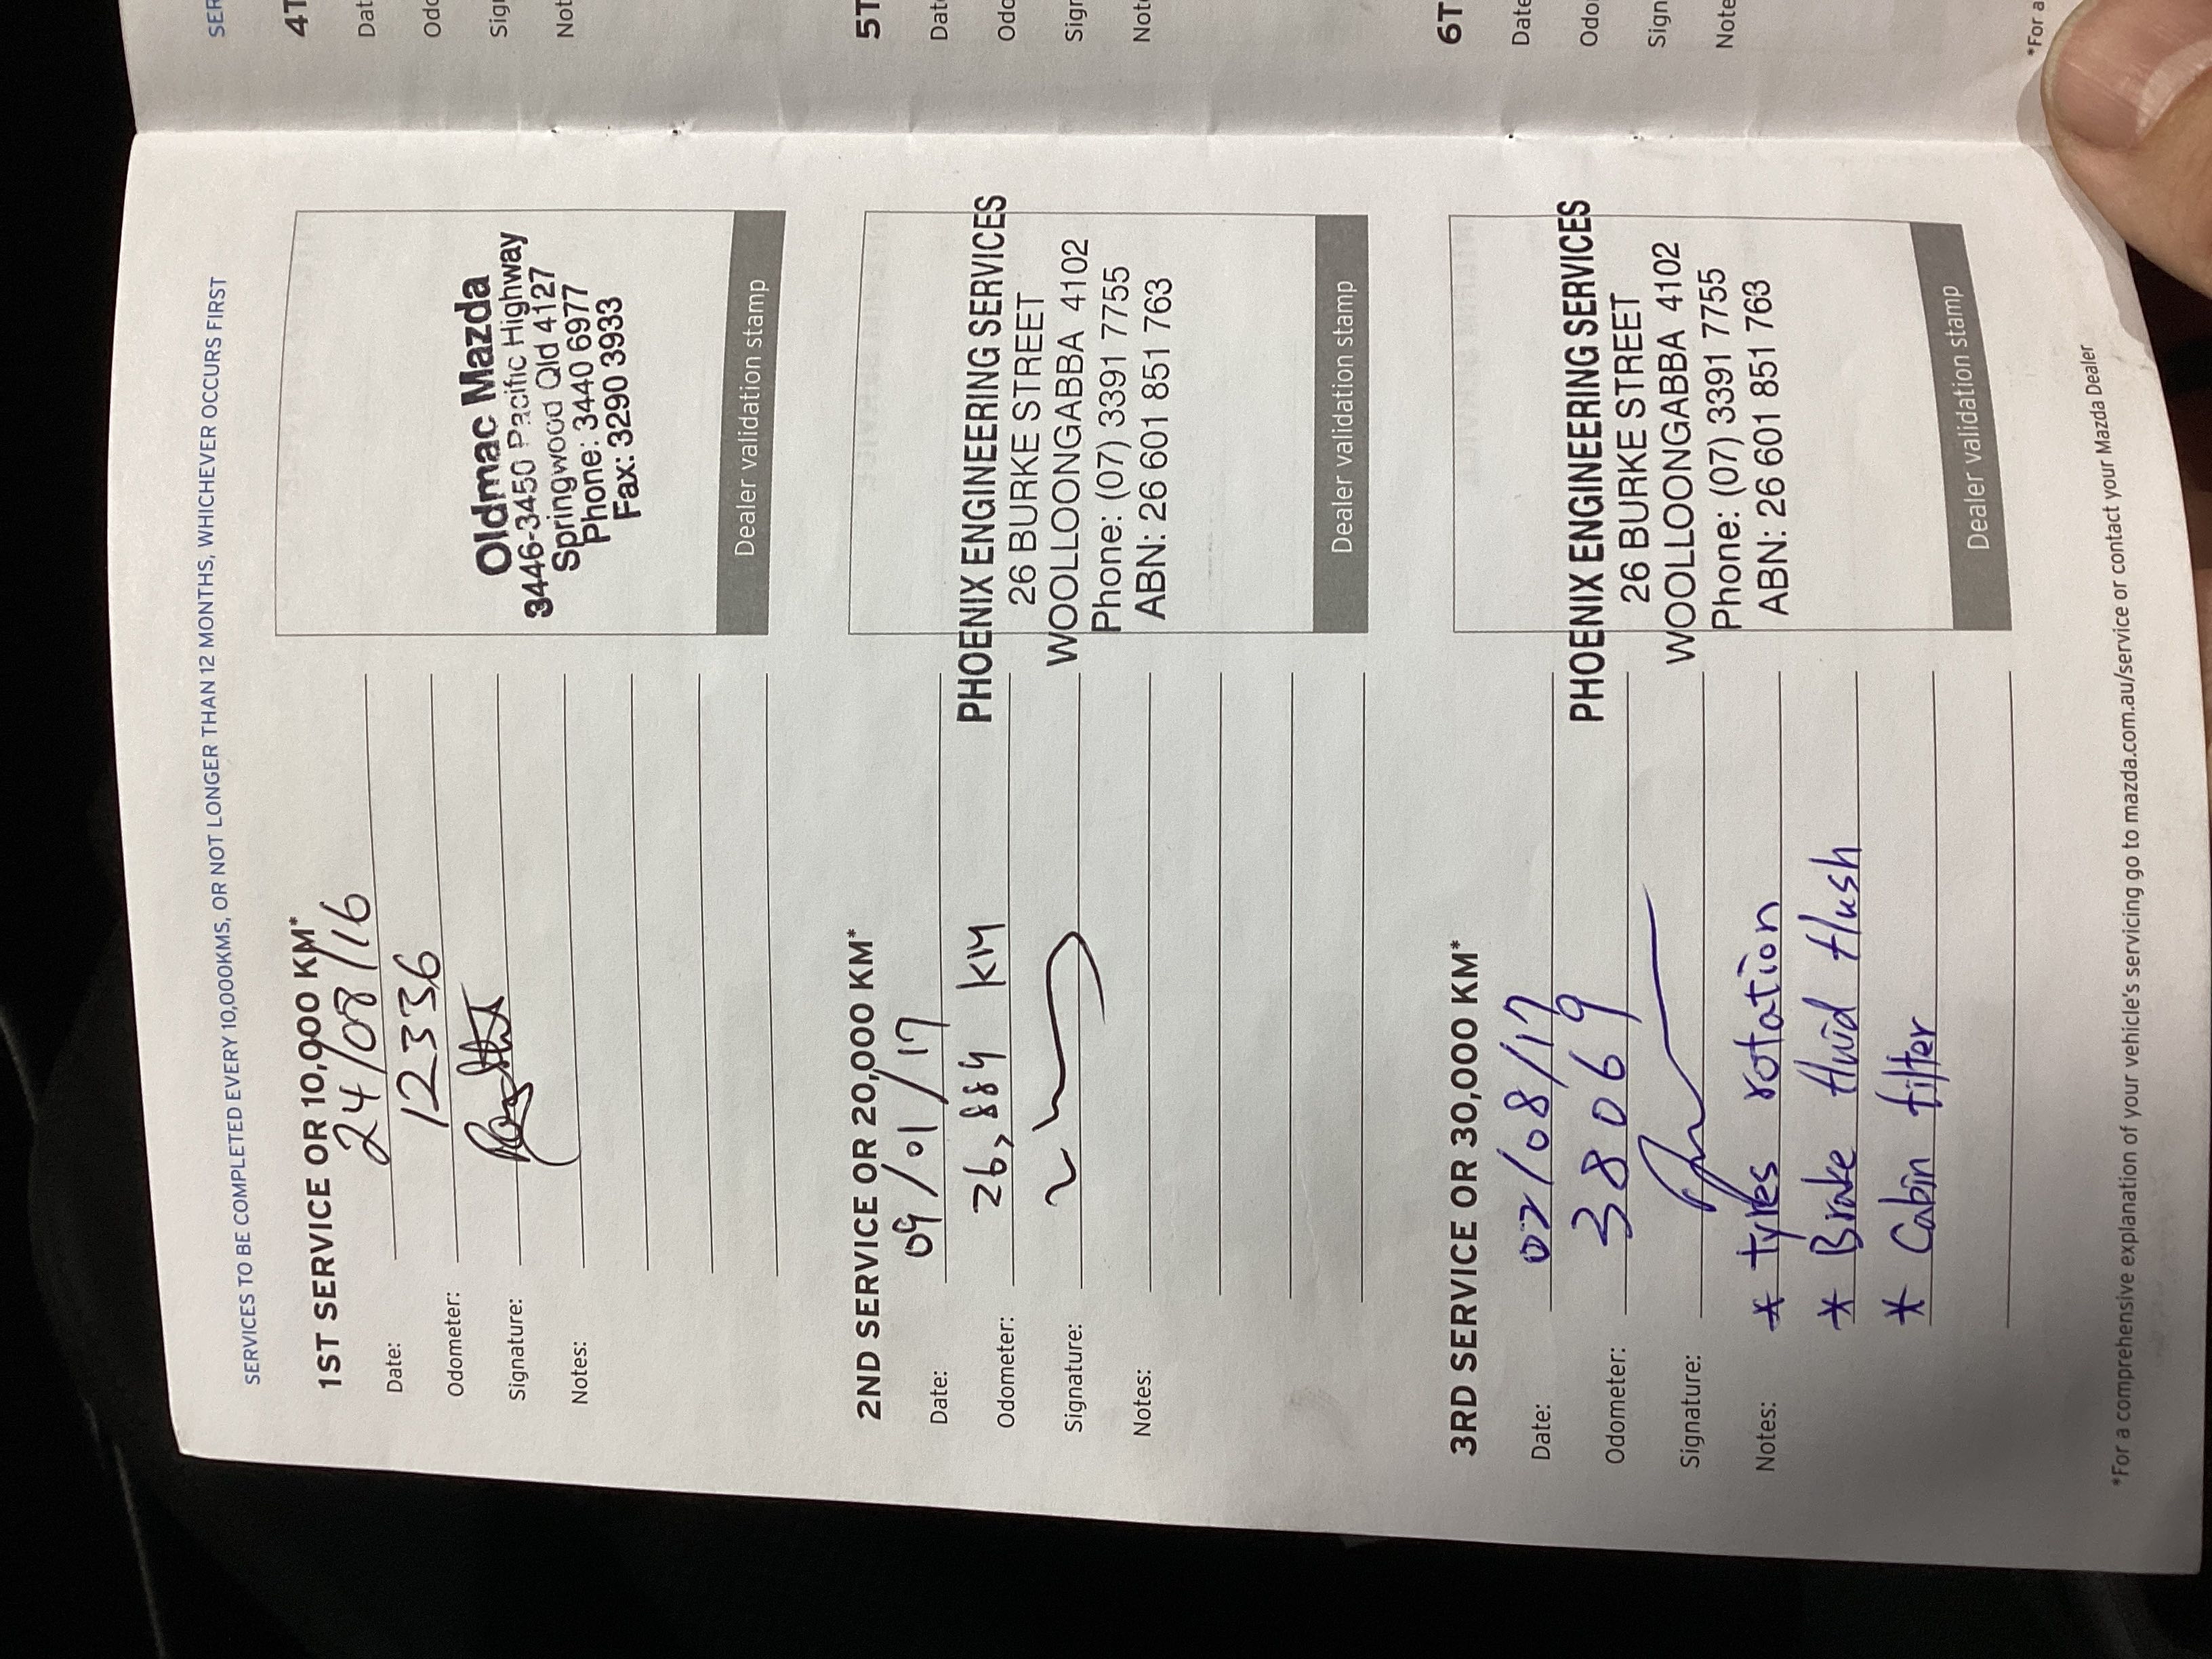 SERVICES TO BE COMPLETED EVERY 10,000KMS, OR NOT LONGER THAN 12 MONTHS, WHICHEVER OCCURS FIRST
1ST SERVICE OR 10,000 KM*
Date: 24/08/16
Odometer: 12336
Signature:
Notes:
Oldmac Mazda
3446-3450 Pacific Highway
Springwood Qld 4127
Phone: 3440 6977
Fax: 3290 3933
Dealer validation stamp
2ND SERVICE OR 20,000 KM*
Date: 09/01/17
Odometer: 26,884 KM
Signature:
Notes:
PHOENIX ENGINEERING SERVICES
26 BURKE STREET
WOOLLOONGABBA 4102
Phone: (07) 3391 7755
ABN: 26 601 851 763
Dealer validation stamp
3RD SERVICE OR 30,000 KM*
Date: 02/08/17
Odometer: 38069
Signature:
Notes: * tyres rotation
* Brake fluid flush
* Cabin filter
PHOENIX ENGINEERING SERVICES
26 BURKE STREET
WOOLLOONGABBA 4102
Phone: (07) 3391 7755
ABN: 26 601 851 763
Dealer validation stamp
*For a comprehensive explanation of your vehicle's servicing go to mazda.com.au/service or contact your Mazda Dealer
SER
4T
Dat
Odo
Sig
Not
5T
Date
Odo
Sign
Note
6T
Date
Odo
Sign
Note
*For a